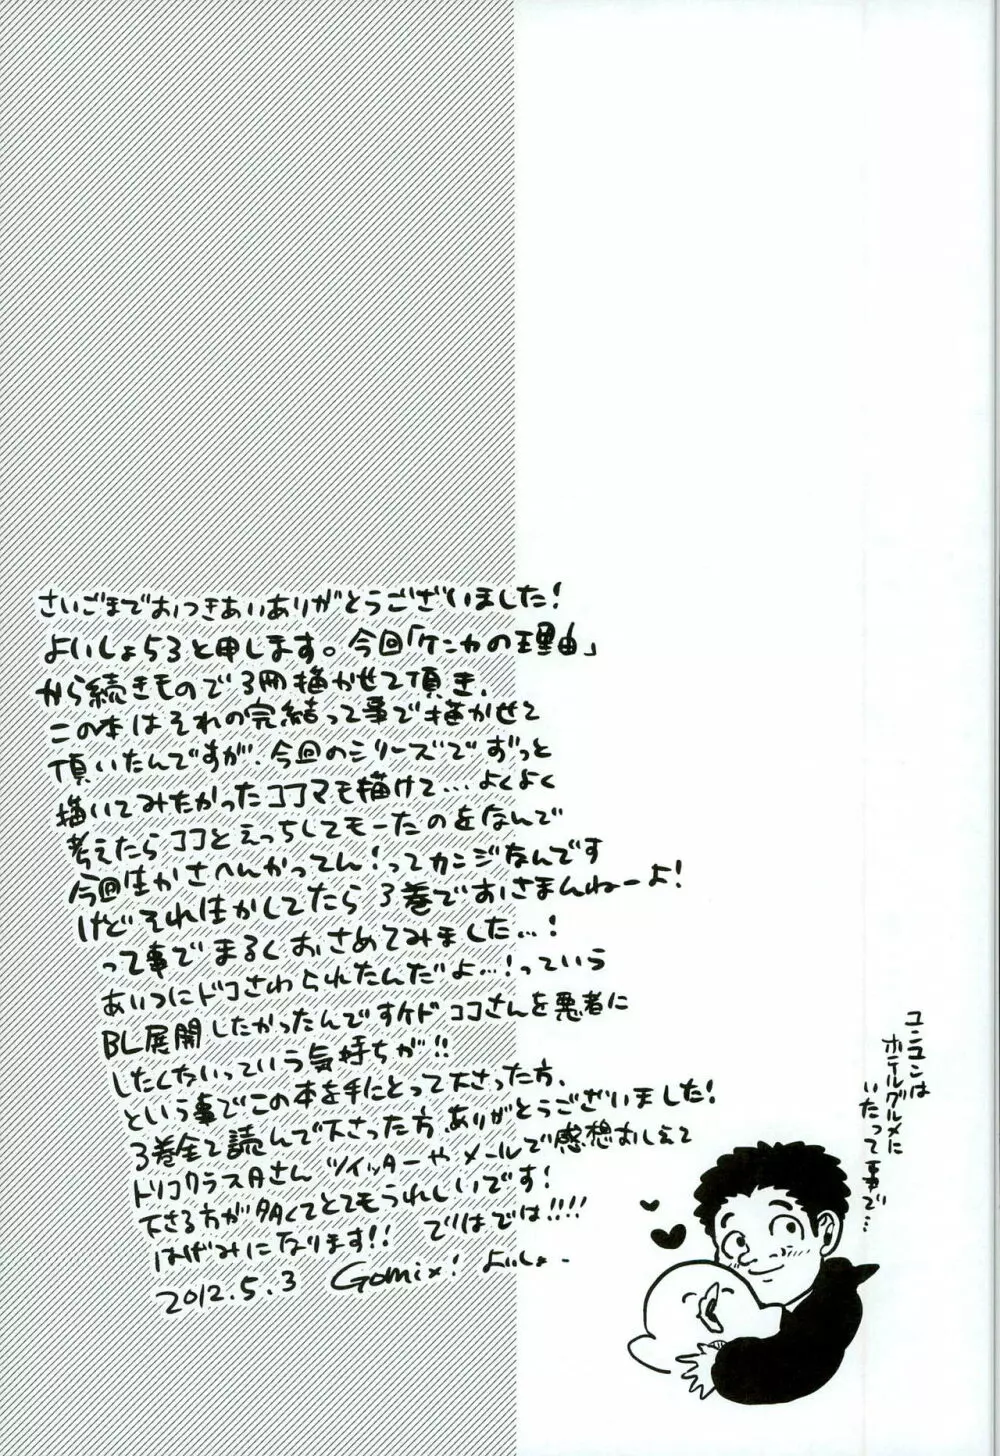 さいごまでおつきあいありがとうございました!
よいしょ53と申します。今回「ケンカの理由」
から続きもので3冊描かせて頂き、
この本はそれの完結って事で描かせて
頂いたんですが、今回のシリーズでずっと
描いてみたかったココマも描けて...よくよく
考えたらココとえっちしてモーたのをなんで
今回生かさへんかってん!ってカンジなんです
けどそれ生かしてたら3巻でおさまんねーよ!
って事でまるくおさめてみました...!
あいつにドコさわられたんだよ...!っていう
BL展開したかったんですケド ココさんを悪者に
したくないっていう気持ちが!!
という事でこの本を手にとって下さった方、
3巻全て読んで下さった方、ありがとうございました!
トリコクラスタさん ツイッターやメールで感想おしえて
下さる方が多くてとてもうれしいです!
はげみになります!! ではでは!!!!
2012.5.3 Gomix! よいしょ.
ユンユンは
ホテルグルメに
いたって事で...